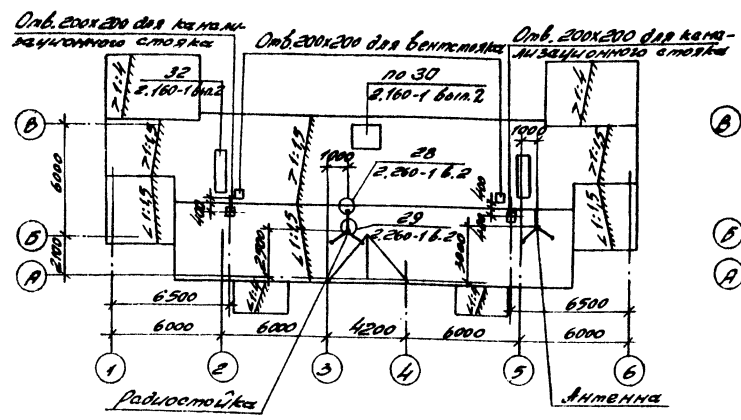 Отв. 200х200 для канали-
зационного стояка
Отв. 200х200 для вентстояка
Отв. 200х200 для кана-
лизационного стояка
32
2.160-1 вып.2
по 30
2.160-1 вып.2
>1:4
>1:4
В
В
1000
1000
28
2.260-1 в.2
29
2.260-1 в.2
>1:1,5
>1:1,5
>1:1,5
<1:1,5
<1:1,5
<1:1,5
6000
400
400
400
400
Б
Б
2100
2900
3000
А
А
<1:4
<1:4
6500
6500
6000
6000
4200
6000
6000
1
2
3
4
5
6
Радиостойка
Антенна